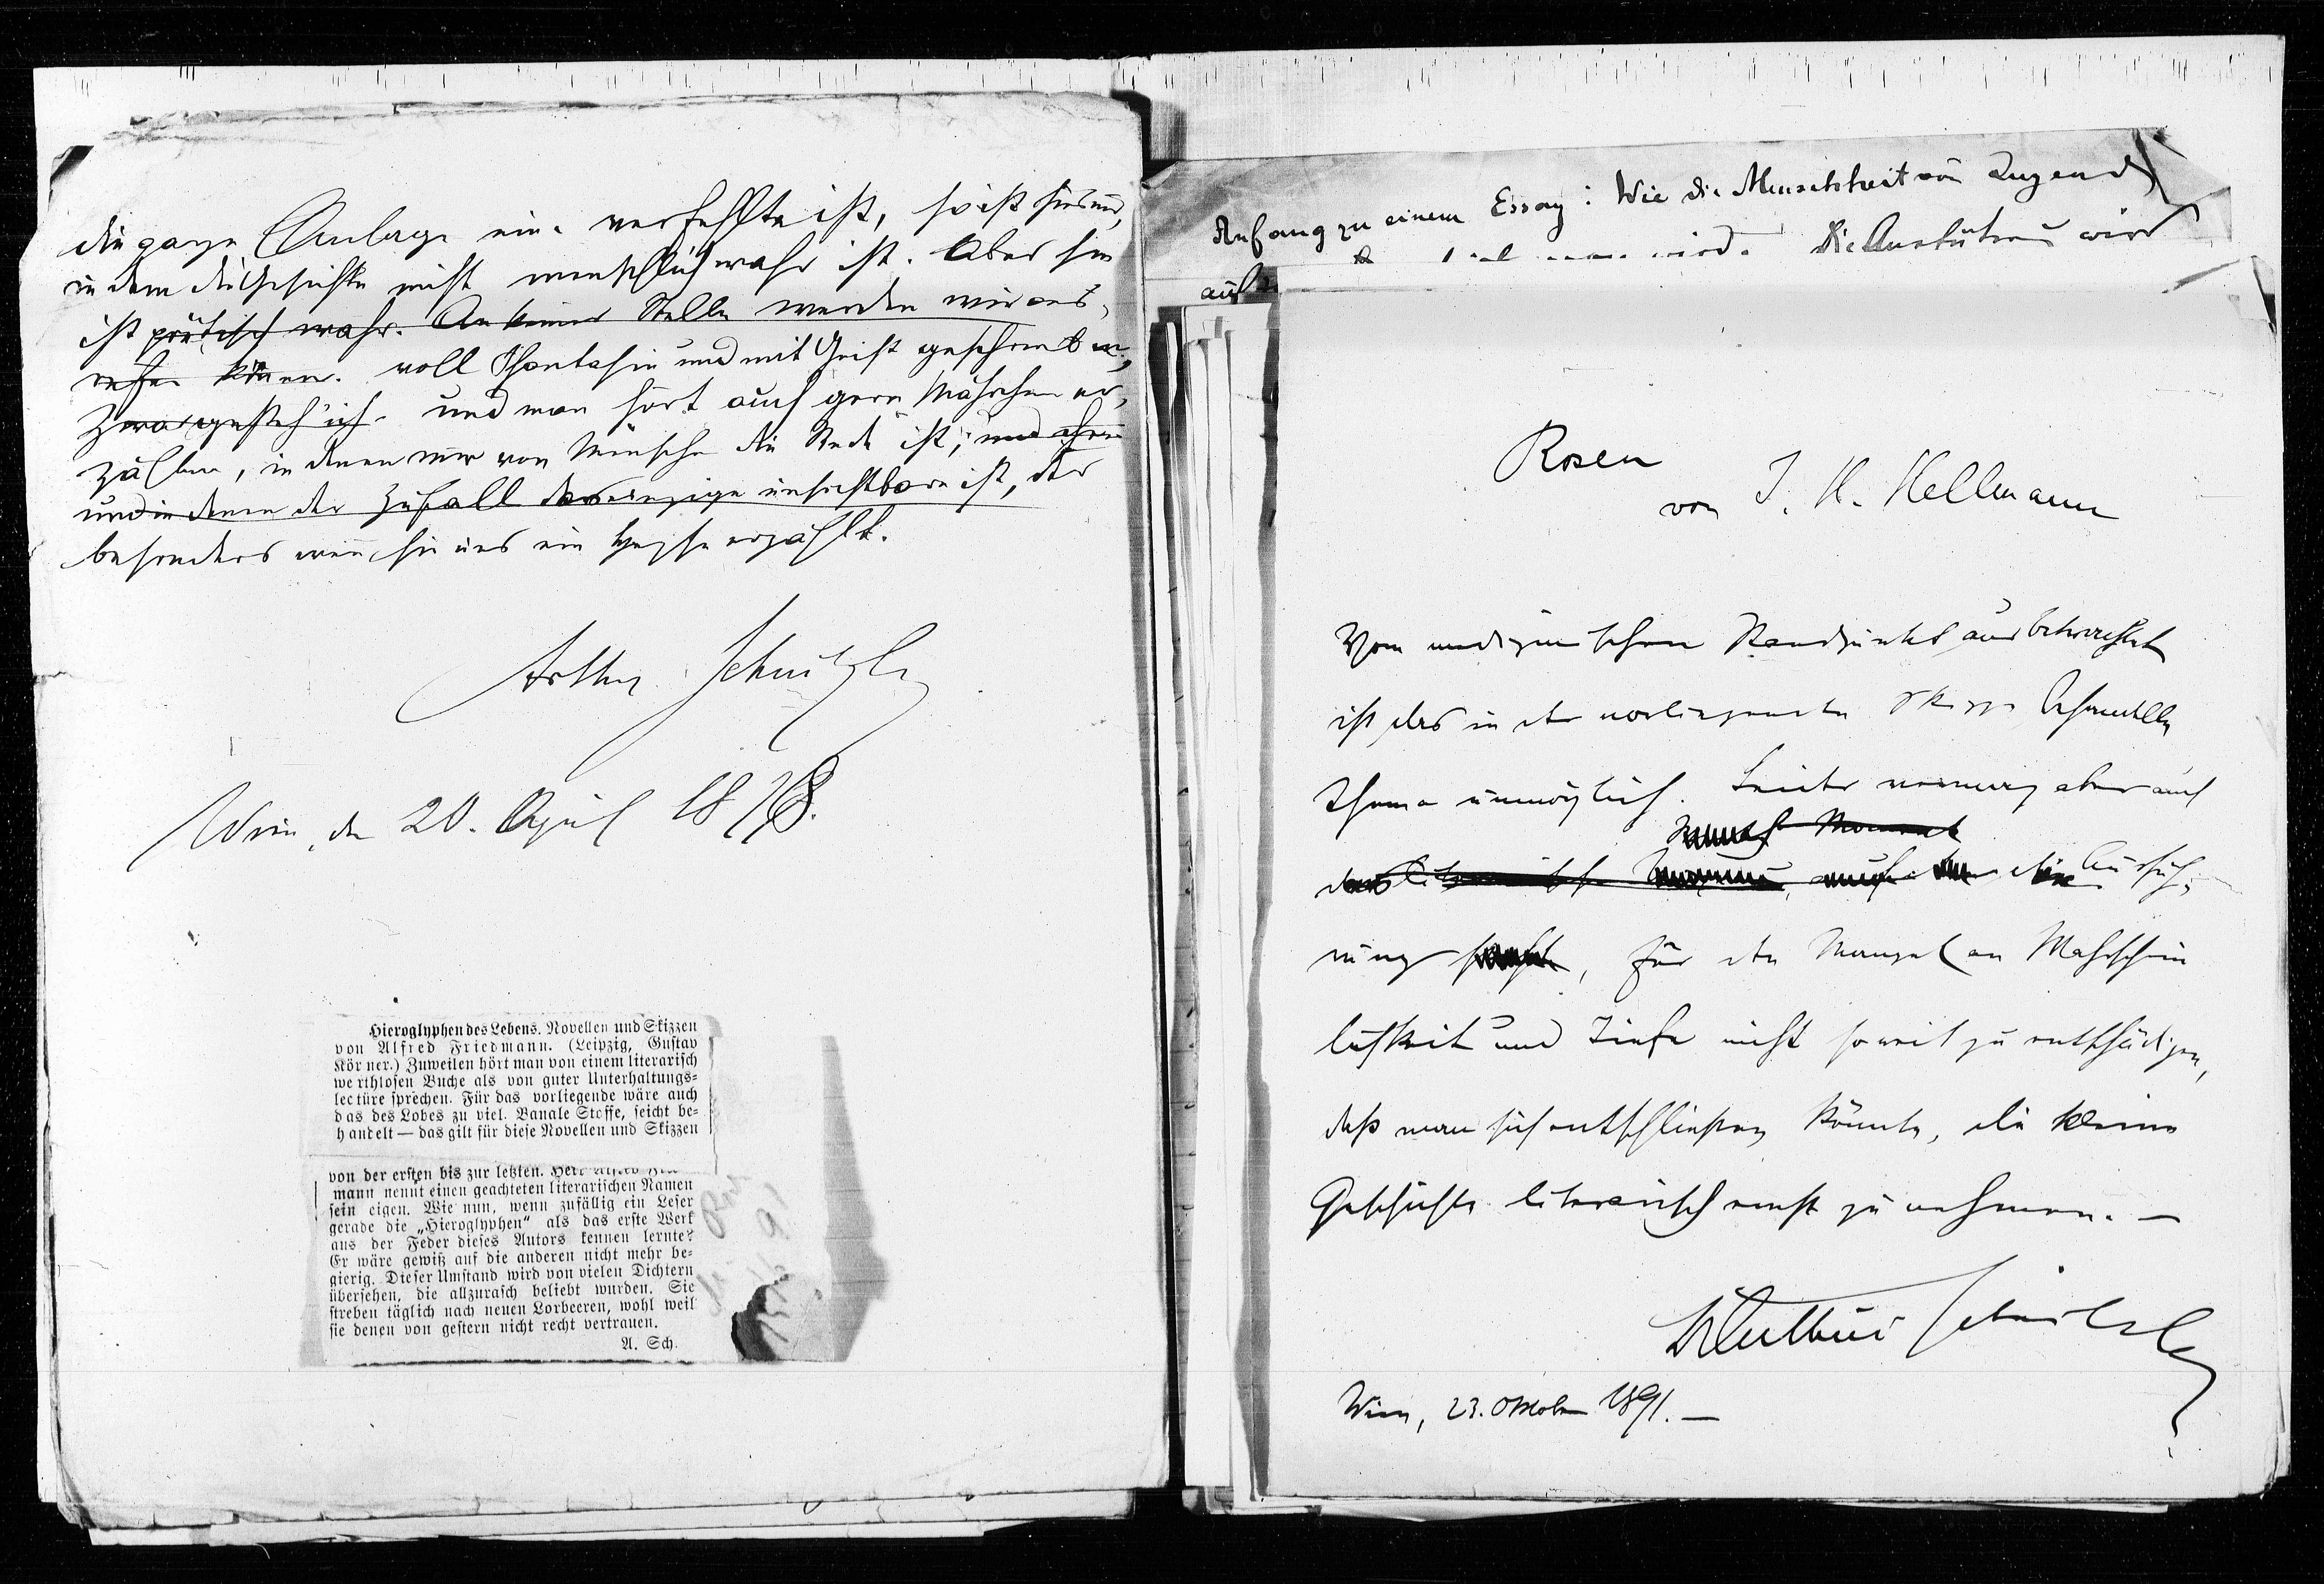 die ganze Anlage eine verfehlte ist, so ist sie es nur,
in dem die Geschichte nicht menschlich wahr ist. Aber sie
ist poetisch wahr. An keiner Stelle werden wir aus-
rufen können. voll Phantasie und mit Geist geschrieben,
gesteh' ich. und man hört auch gern Mährchen er-
zählen, in denen nur von Wünschen die Rede ist,
und in denen der Zufall das einzige ist, der
besonders wenn sie uns ein Heyse erzählt.
Arthur Schnitzler
Wien, den 20. April 1878.
Hieroglyphen des Lebens. Novellen und Skizzen
von Alfred Friedmann. (Leipzig, Gustav
Körner.) Zuweilen hört man von einem literarisch
werthlosen Buche als von guter Unterhaltungs-
lectüre sprechen. Für das vorliegende wäre auch
das des Lobes zu viel. Banale Stoffe, seicht be-
handelt — das gilt für diese Novellen und Skizzen
von der ersten bis zur letzten. Herr Alfred
mann nennt einen geachteten literarischen Namen
sein eigen. Wie nun, wenn zufällig ein Leser
gerade die „Hieroglyphen“ als das erste Werk
aus der Feder dieses Autors kennen lernte?
Er wäre gewiß auf die anderen nicht mehr be-
gierig. Dieser Umstand wird von vielen Dichtern
übersehen, die allzurasch beliebt wurden. Sie
streben täglich nach neuen Lorbeeren, wohl weil
sie denen von gestern nicht recht vertrauen.
A. Sch.
Anfang zu einem Essay: Wie die Menschheit von Tugend
wird. Die wird
auf
Rosen
von J. H. Hellmann
Vom medizinischen Standpunkt aus betrachtet
ist das in der vorliegenden Skizze behandelte
Thema unmöglich. Leider vermag aber auch
die Ausfüh-
rung, für den Mangel an Wahrschein
lichkeit und Tiefe nicht soweit zu entschädigen,
daß man sich entschließen könnte, die kleine
Geschichte literarisch ernst zu nehmen. —
Dr Arthur Schnitzler
Wien, 23. Oktober 1891. —